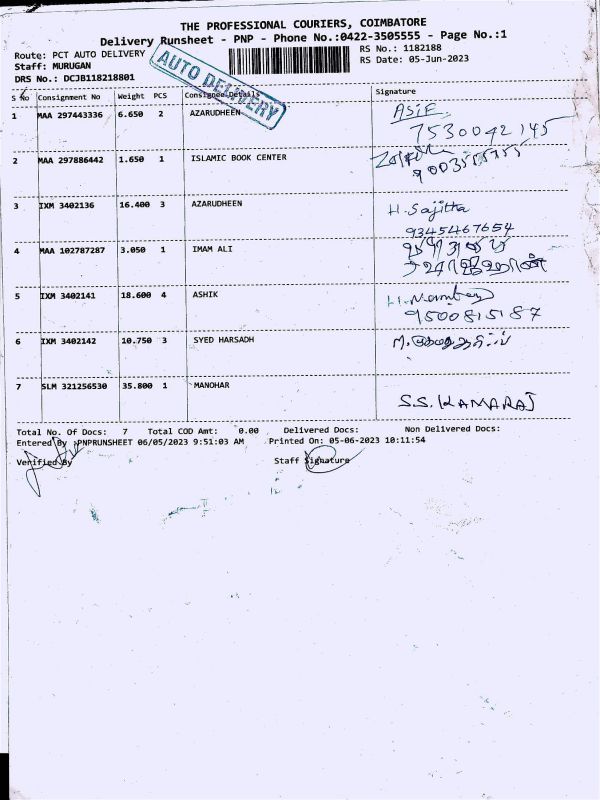 THE PROFESSIONAL COURIERS, COIMBATORE
Delivery Runsheet - PNP - Phone No.:0422-3505555 - Page No.:1
Route: PCT AUTO DELIVERY
RS No.: 1182188
Staff: MURUGAN
RS Date: 05-Jun-2023
DRS No.: DCJB118218801
AUTO DELIVERY
S No Consignment No Weight PCS Consignee Details Signature
1 MAA 297443336 6.650 2 AZARUDHEEN ASIF
7530042145
2 MAA 297886442 1.650 1 ISLAMIC BOOK CENTER
9003555755
3 IXM 3402136 16.400 3 AZARUDHEEN H. Sajitha
9345467654
4 MAA 102787287 3.050 1 IMAM ALI
5 IXM 3402141 18.600 4 ASHIK
9500815187
6 IXM 3402142 10.750 3 SYED HARSADH
7 SLM 321256530 35.800 1 MANOHAR
S.S. KAMARAJ
Total No. Of Docs: 7 Total COD Amt: 0.00 Delivered Docs: Non Delivered Docs:
Entered By PNPRUNSHEET 06/05/2023 9:51:03 AM Printed On: 05-06-2023 10:11:54
Verified By Staff Signature